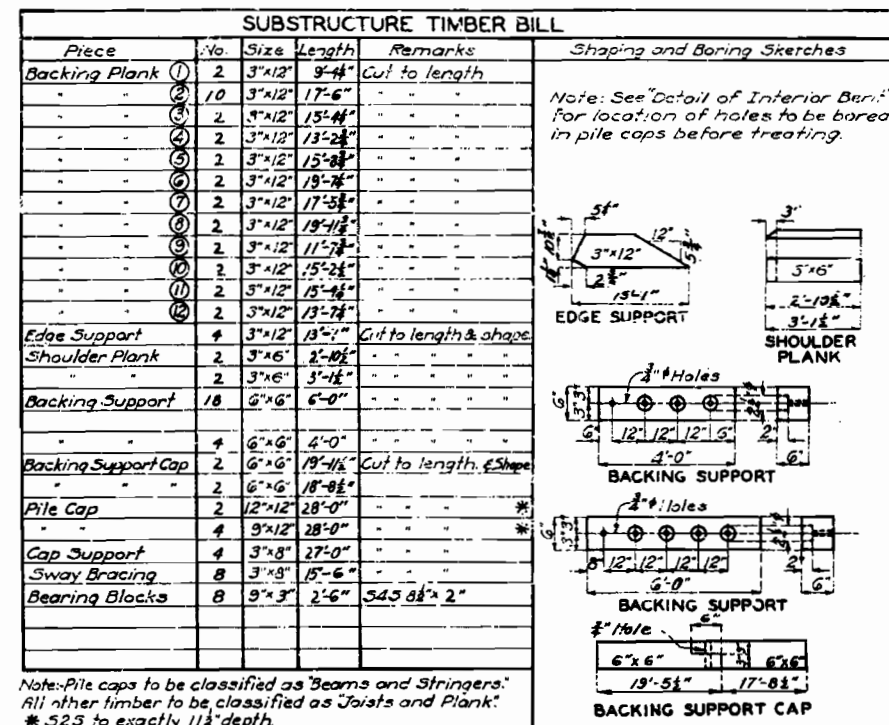 SUBSTRUCTURE TIMBER BILL
Piece No. Size Length Remarks
Backing Plank ① 2 3"x12" Cut to length
" " ② 10 3"x12" 17'-6" " " "
" " ③ 2 15'-4¼" " " "
" " ④ 2 3"x12" " " "
" " ⑤ 2 3"x12" " " "
" " ⑥ 2 3"x12" " " "
" " ⑦ 2 3"x12" " " "
" " ⑧ 2 3"x12" " " "
" " ⑨ 2 3"x12" " " "
" " ⑩ 2 3"x12" " " "
" " ⑪ 2 " " "
" " ⑫ 2 3"x12" " " "
Edge Support 4 3"x12" 13'-1" Cut to length & shape
Shoulder Plank 2 3"x6" 2'-10½" " " " "
" " 2 3"x6" 3'-1½" " " " "
Backing Support 18 6"x6" 6'-0" " " " "
" " 4 6"x6" 4'-0" " " " "
Backing Support Cap 2 6"x6" 19'-11½" Cut to length & Shape
" " " 2 6"x6" 18'-8½"
Pile Cap 2 12"x12" 28'-0" " " " *
" " 4 9"x12" 28'-0" " " " *
Cap Support 4 3"x8" 27'-0" " " "
Sway Bracing 8 3"x8" 15'-6" " " "
Bearing Blocks 8 9"x3" 2'-6" S4S 8½"x 2"
Note:-Pile caps to be classified as "Beams and Stringers."
All other timber to be classified as "Joists and Plank".
* S2S to exactly 11½" depth.
Shaping and Boring Sketches
Note: See "Detail of Interior Bent"
for location of holes to be bored
in pile caps before treating.
12"
3"x12"
EDGE SUPPORT
3"
2'-10½"
3'-1½"
SHOULDER
PLANK
¾"φ Holes
6" 3" 3"
6" 12" 12" 12" 6" 2" 6"
4'-0"
BACKING SUPPORT
¾"φ Holes
6" 3" 3"
8" 12" 12" 12" 2" 6"
6'-0"
BACKING SUPPORT
6"
¾" Hole
6"x 6" 6"x6"
19'-5½" 17'-8½"
BACKING SUPPORT CAP